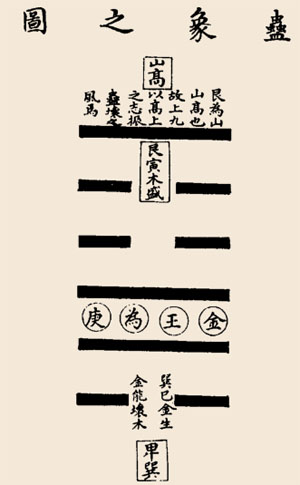 蠱象之圖
山高
艮為山
山高也
故上九
以高上
之志振
蠱壞之
風焉
艮寅木盛
金王為庚
巽巳金生
金能壞木
甲巽